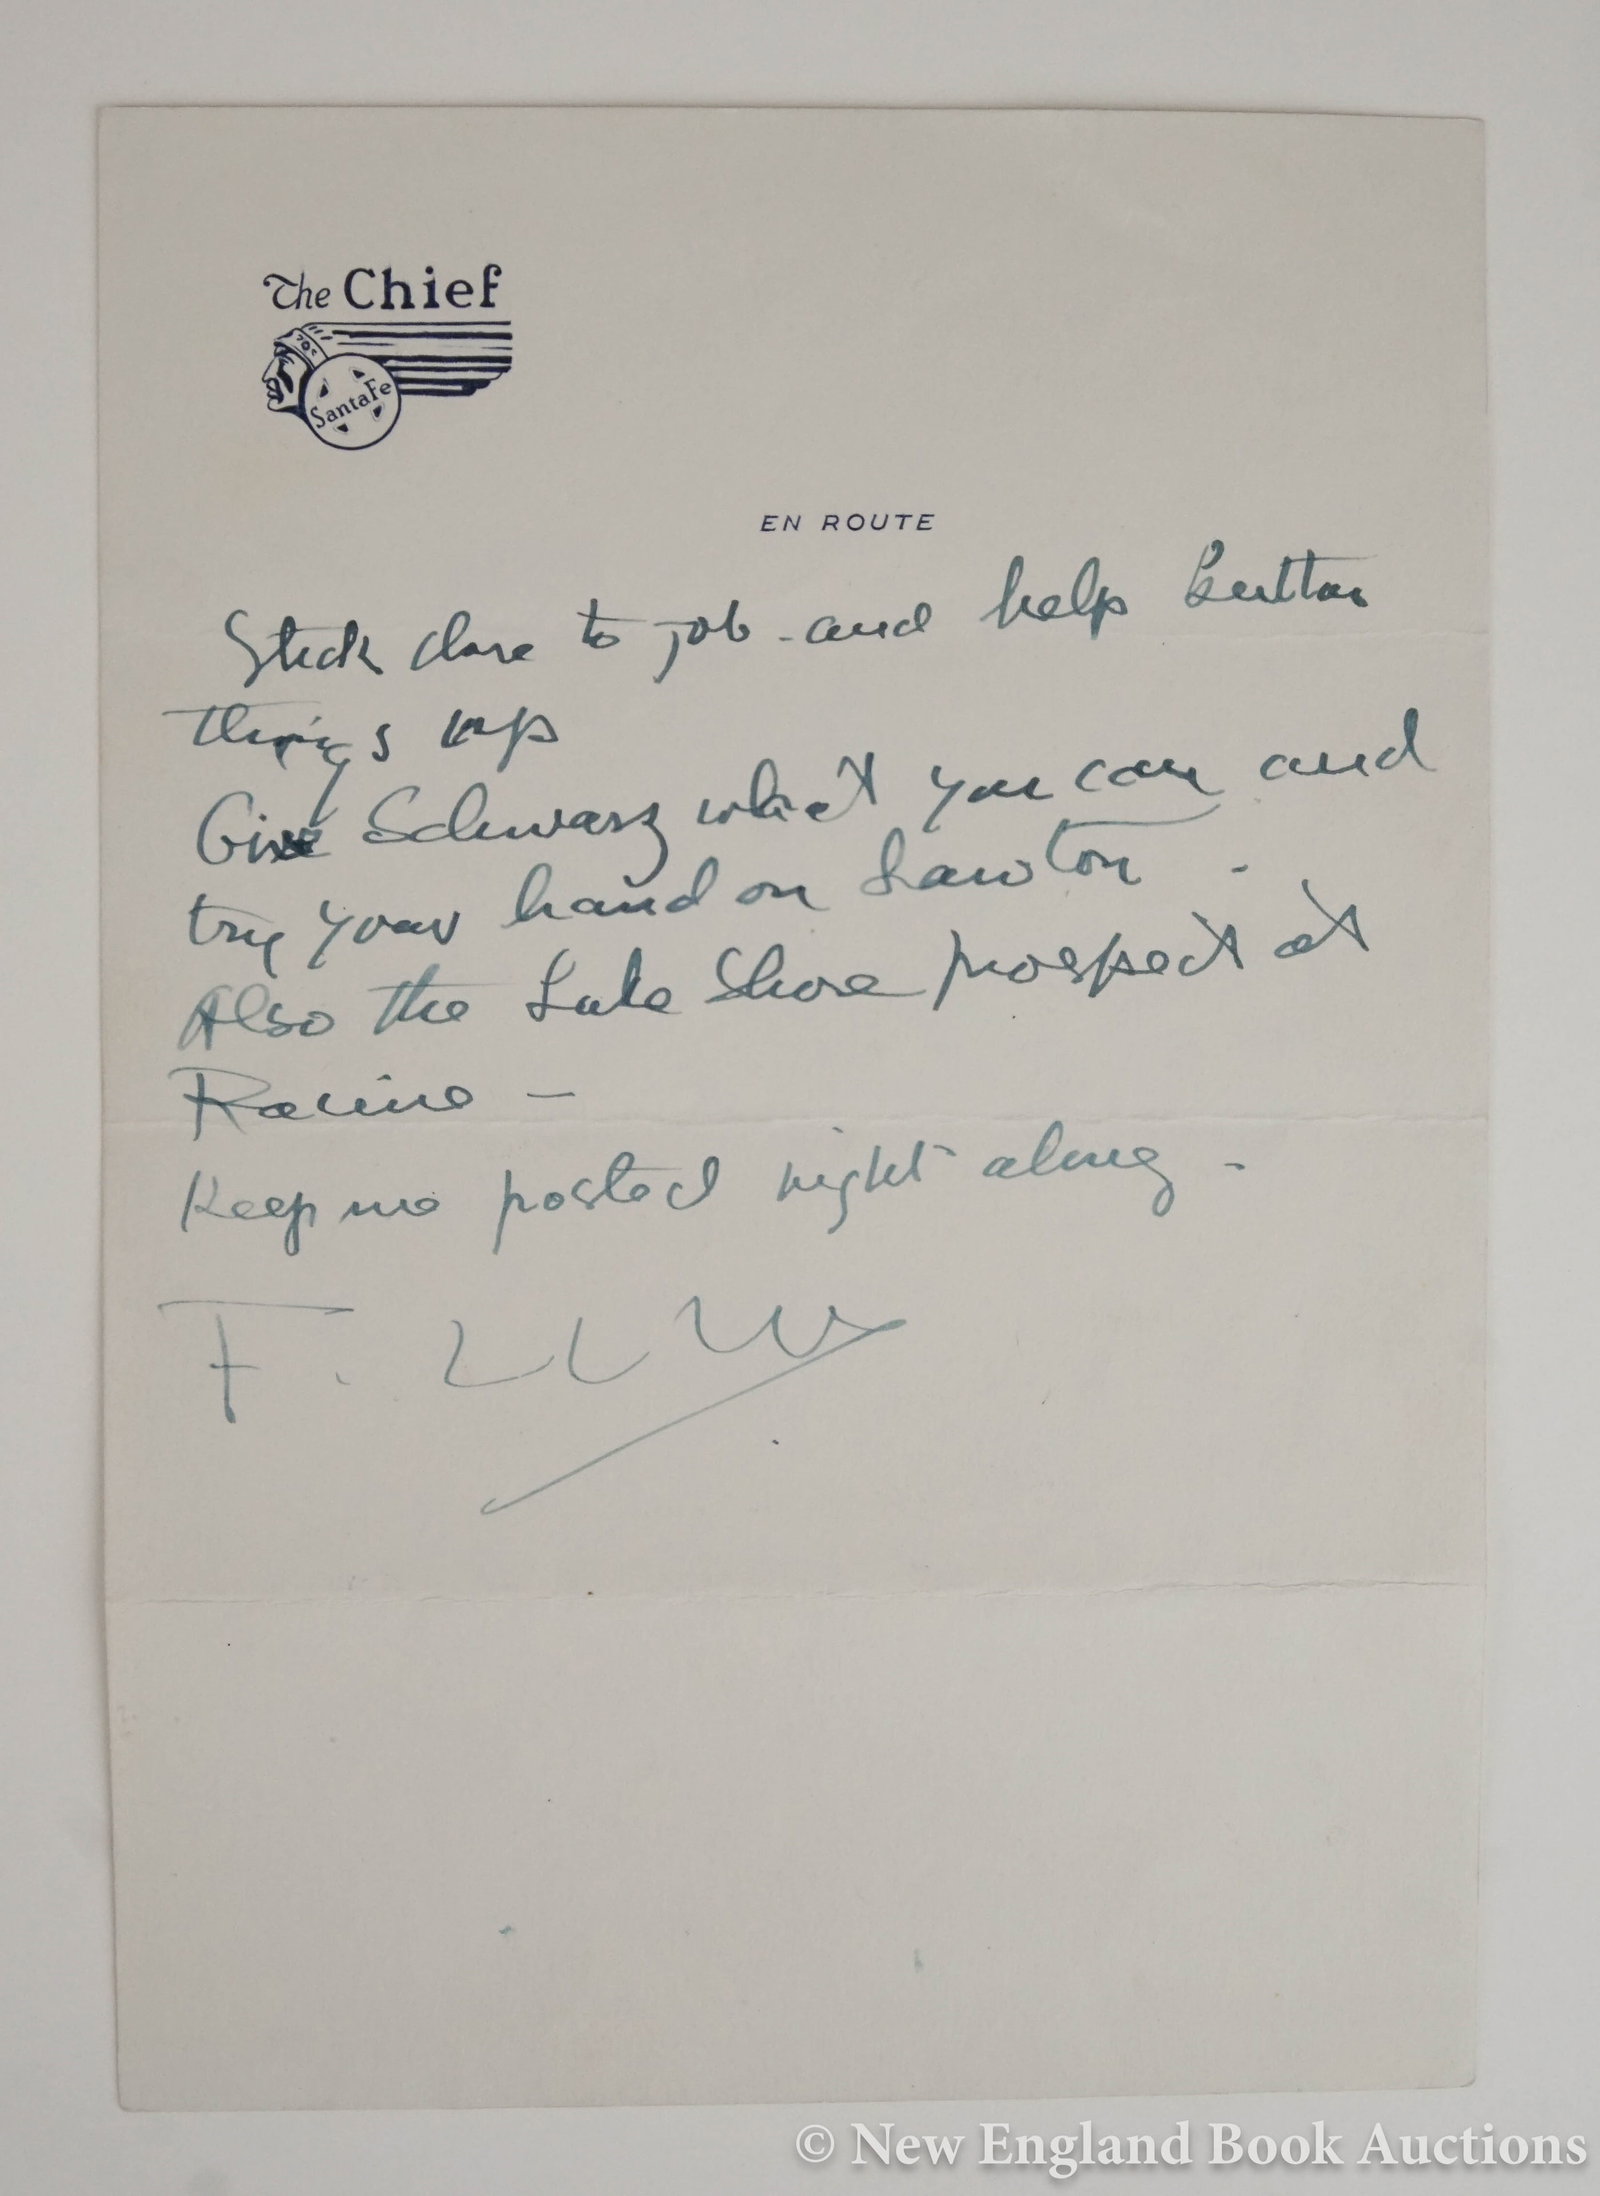 The Chief
Santa Fe
EN ROUTE
Stick close to job - and help button
things up
Give Schwarz what you can and
try your hand on Lawton -
Also the Lake Shore prospect at
Racine -
Keep me posted right along -
F. LL. W
© New England Book Auctions